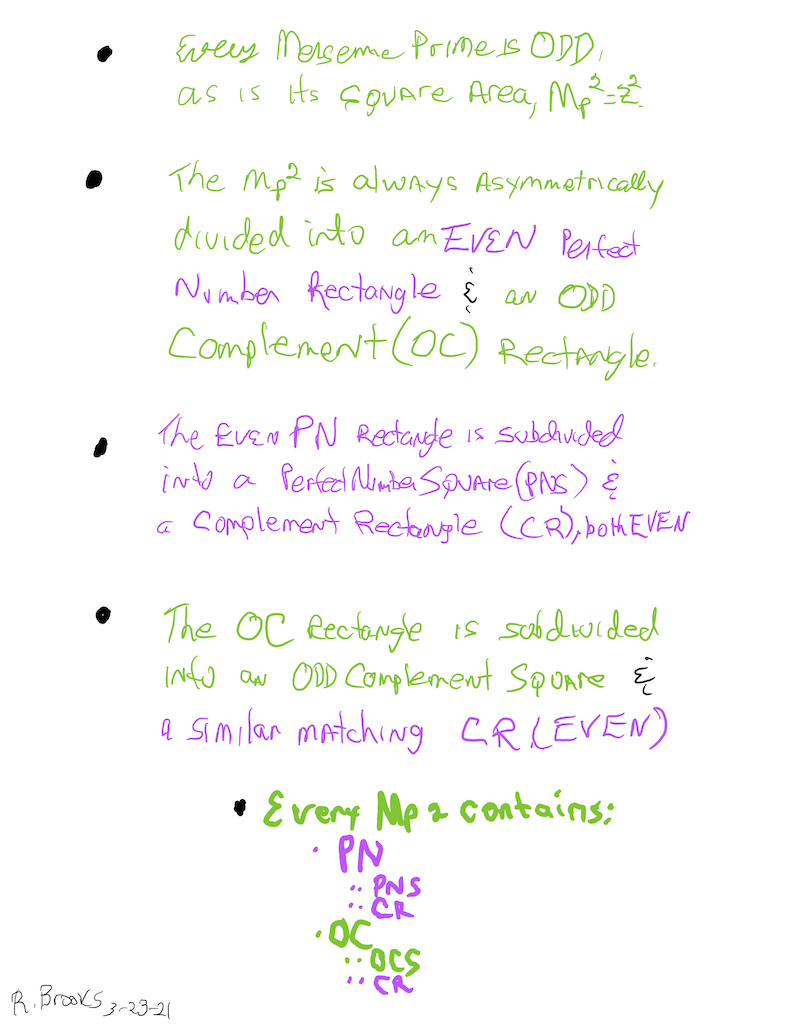 • Every Mersenne Prime is ODD,
as is its square Area, Mp²=z².
• The Mp² is always Asymmetrically
divided into an EVEN Perfect
Number Rectangle & an ODD
Complement (OC) Rectangle.
• The Even PN Rectangle is subdivided
into a Perfect Number Square (PNS) &
a Complement Rectangle (CR), both EVEN
• The OC Rectangle is subdivided
into an ODD Complement Square &
a similar matching CR (EVEN)
• Every Mp2 contains:
· PN
:: PNS
:: CR
· OC
:: OCS
:: CR
R. Brooks 3-23-21